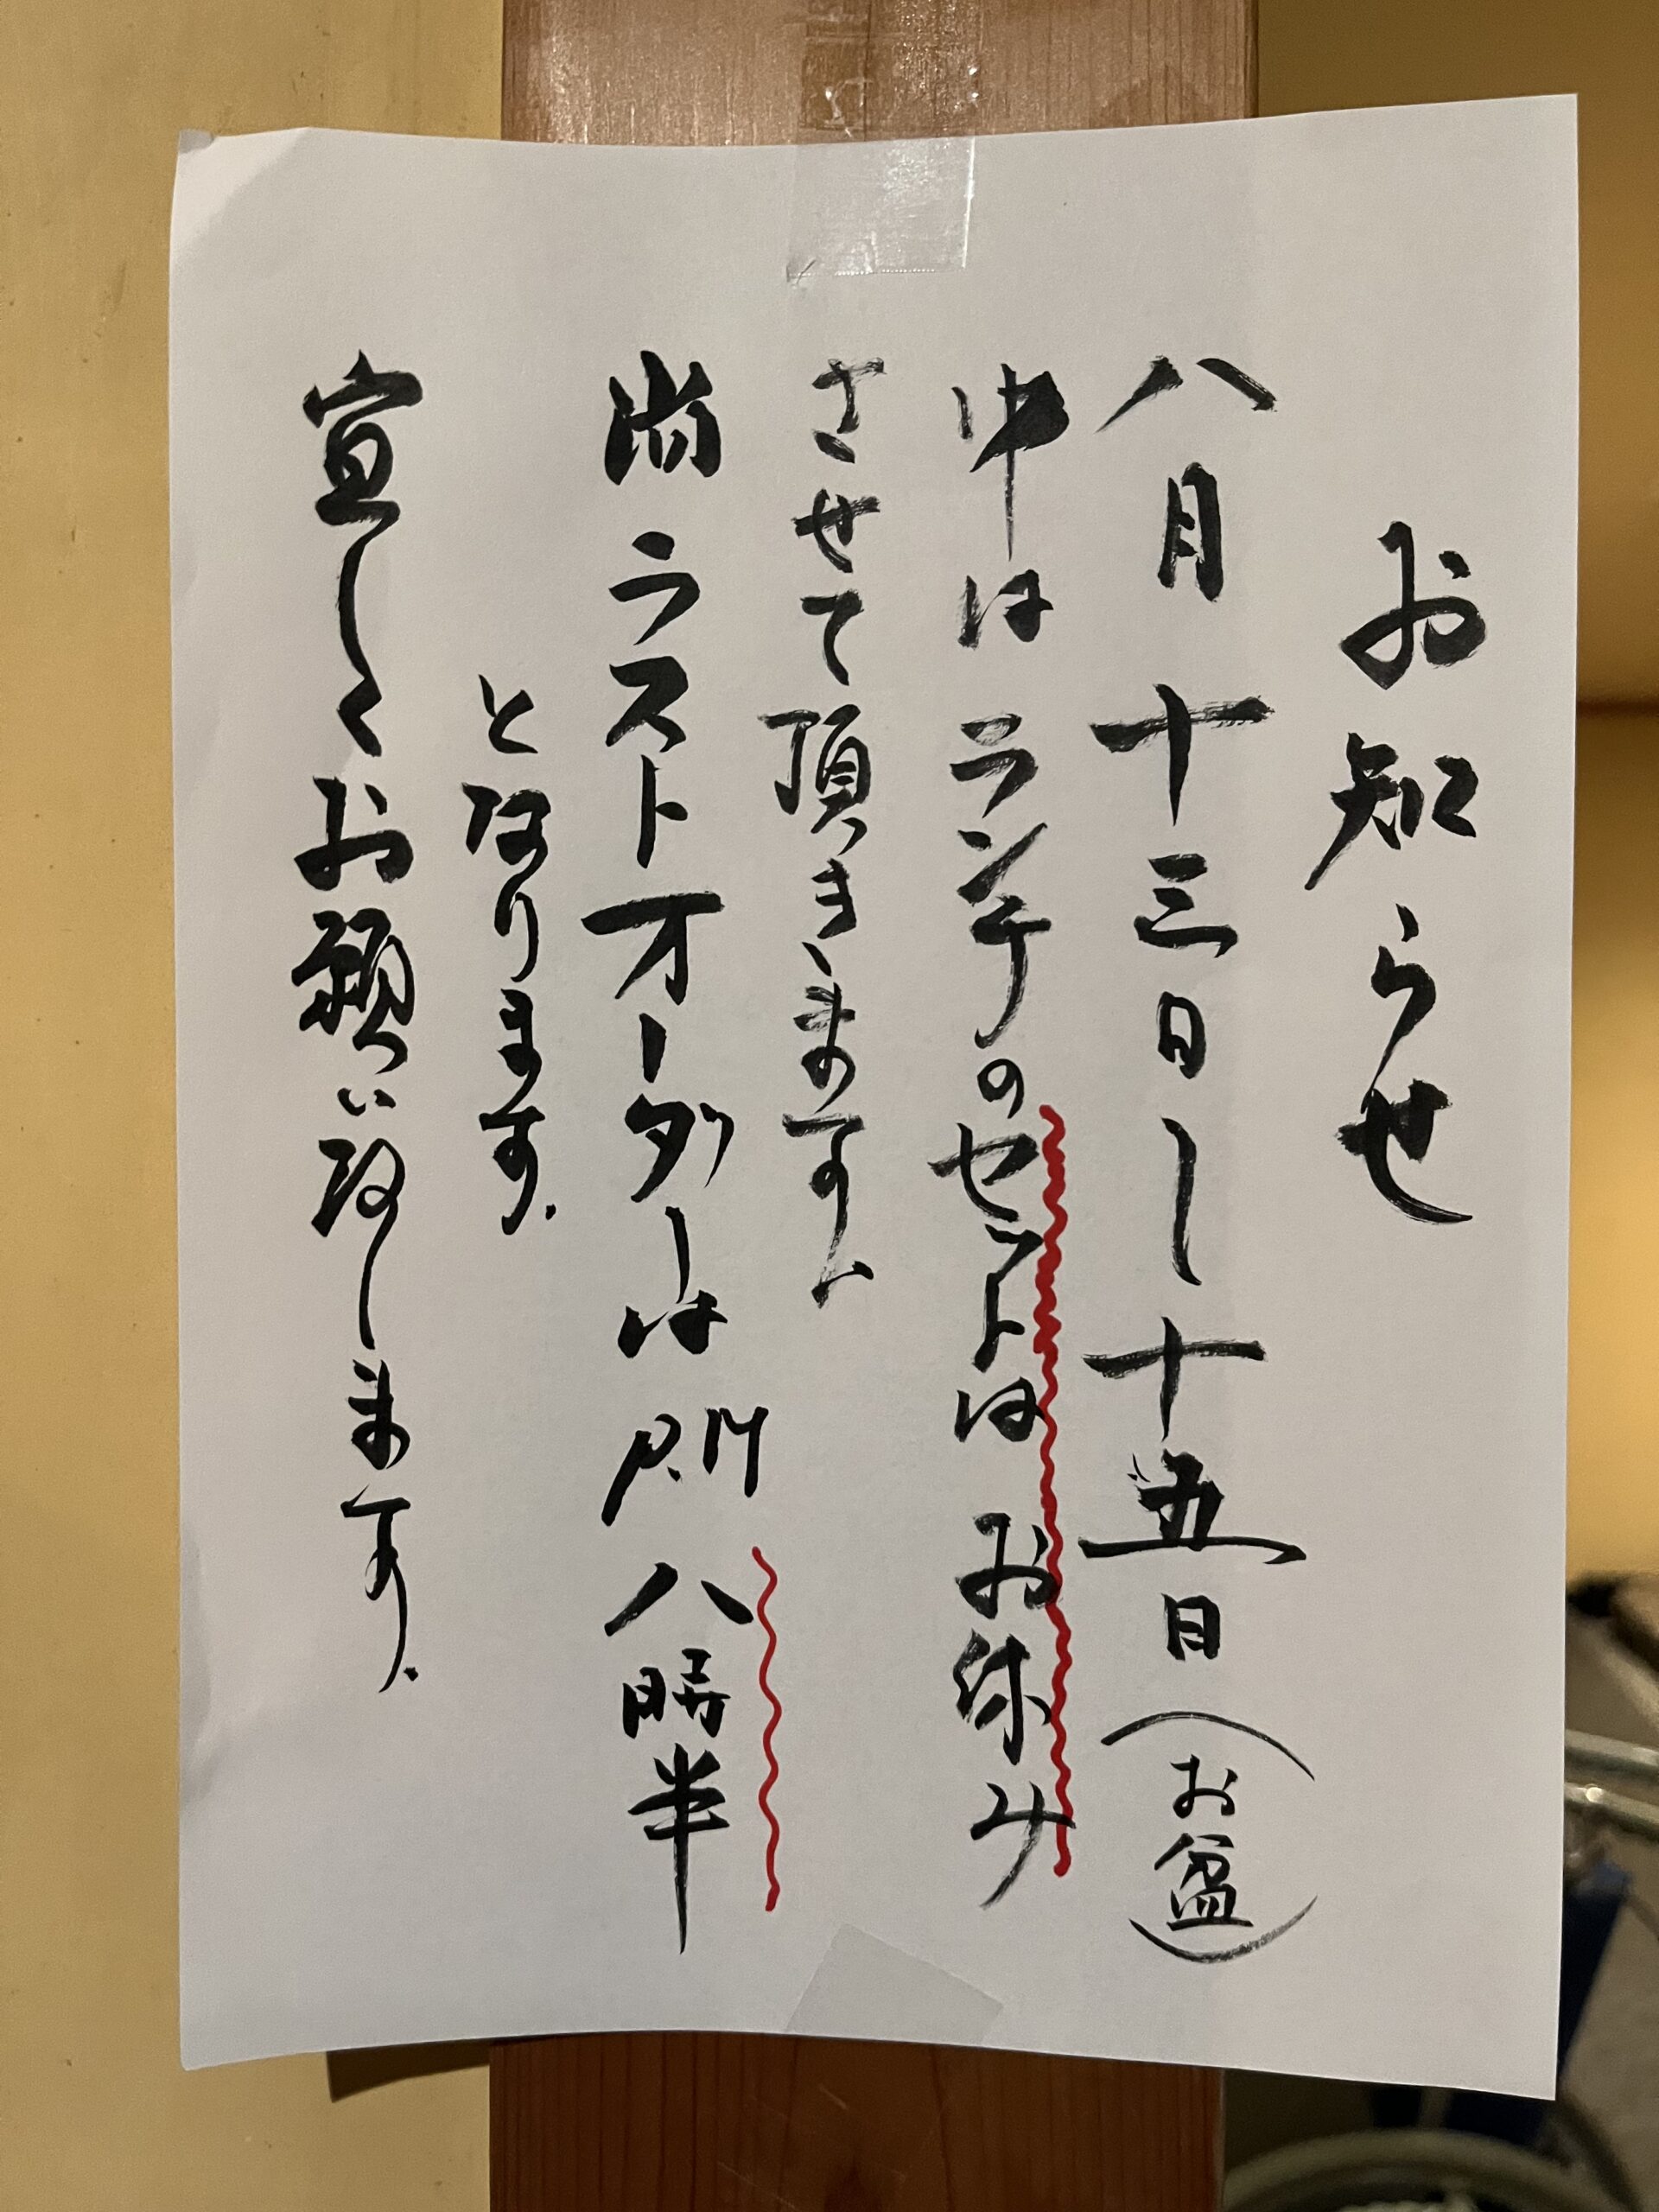 お知らせ
八月十三日ー十五日(お盆)
中はランチのセットはお休み
させて頂きます。
尚ラストオーダーはP.M八時半
となります。
宜しくお願い致します。